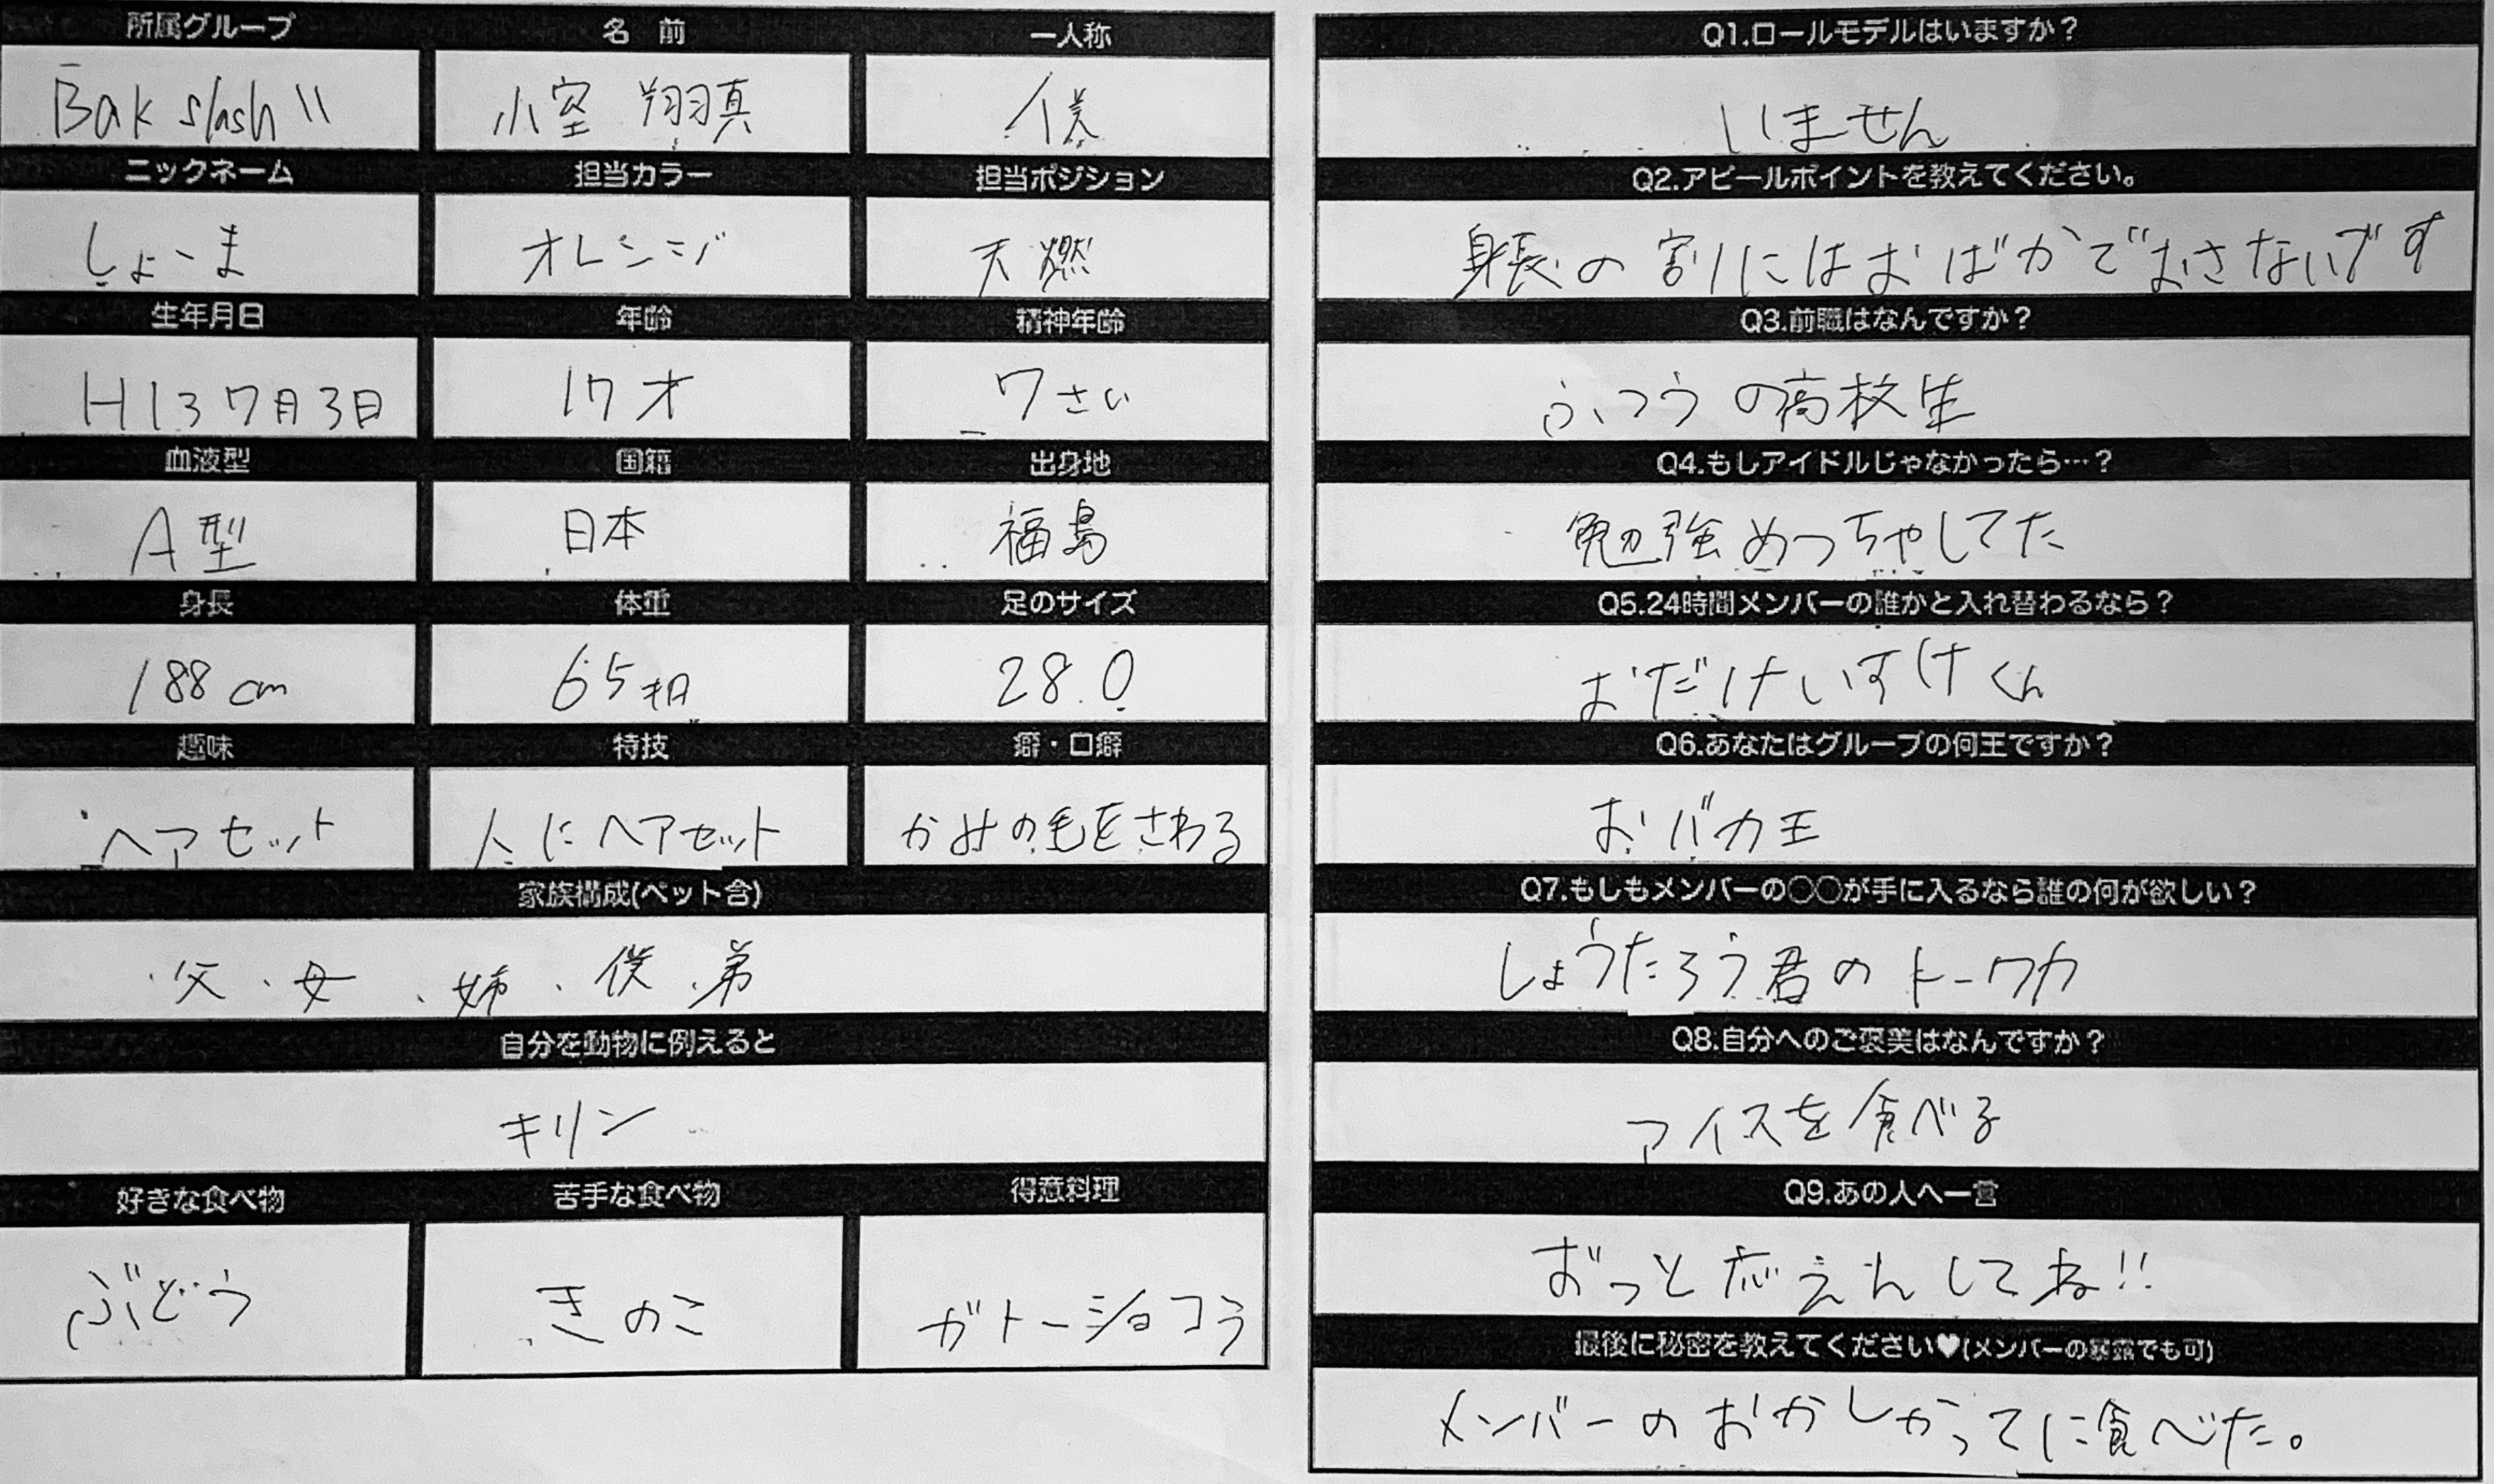 所属グループ 名 前 一人称
Bak slash \\ 小室 翔真 僕
ニックネーム 担当カラー 担当ポジション
しょーま オレンジ 天燃
生年月日 年齢 精神年齢
H13 7月3日 17才 7さい
血液型 国籍 出身地
A型 日本 福島
身長 体重 足のサイズ
188cm 65キロ 28.0
趣味 特技 癖・口癖
ヘアセット 人にヘアセット かみの毛をさわる
家族構成(ペット含)
父、母、姉、僕、弟
自分を動物に例えると
キリン
好きな食べ物 苦手な食べ物 得意料理
ぶどう きのこ ガトーショコラ
Q1.ロールモデルはいますか?
いません
Q2.アピールポイントを教えてください。
身長の割にはおばかでおさないです
Q3.前職はなんですか?
ふつうの高校生
Q4.もしアイドルじゃなかったら…?
勉強めっちゃしてた
Q5.24時間メンバーの誰かと入れ替わるなら?
おだけいすけくん
Q6.あなたはグループの何王ですか?
おバカ王
Q7.もしもメンバーの○○が手に入るなら誰の何が欲しい?
しょうたろう君のトークカ
Q8.自分へのご褒美はなんですか?
アイスを食べる
Q9.あの人へ一言
ずっと応えんしてね!!
最後に秘密を教えてください♥(メンバーの暴露でも可)
メンバーのおかしかってに食べた。